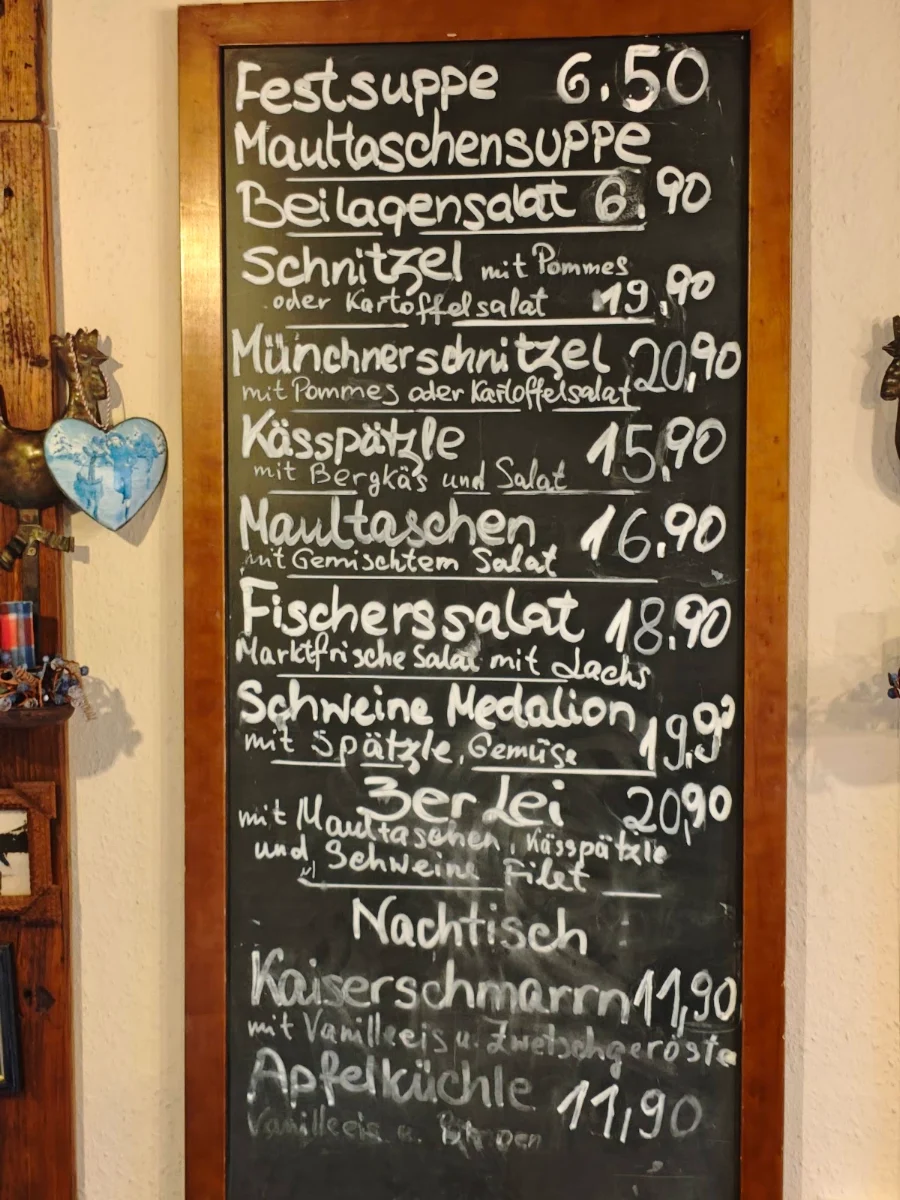 Festsuppe 6.50
Maultaschensuppe
Beilagensalat 6.90
Schnitzel mit Pommes
oder Kartoffelsalat 19,90
Münchnerschnitzel 20,90
mit Pommes oder Kartoffelsalat
Kässpätzle 15,90
mit Bergkäs und Salat
Maultaschen 16.90
mit Gemischtem Salat
Fischerssalat 18.90
Marktfrische Salat mit Lachs
Schweine Medalion 19,90
mit Spätzle, Gemüse
3erLei 20,90
mit Maultaschen, Kässpätzle
und Schweine Filet
Nachtisch
Kaiserschmarrn 11,90
mit Vanilleeis u. Zwetschgeröste
Apfelküchle 11,90
Vanilleeis u.